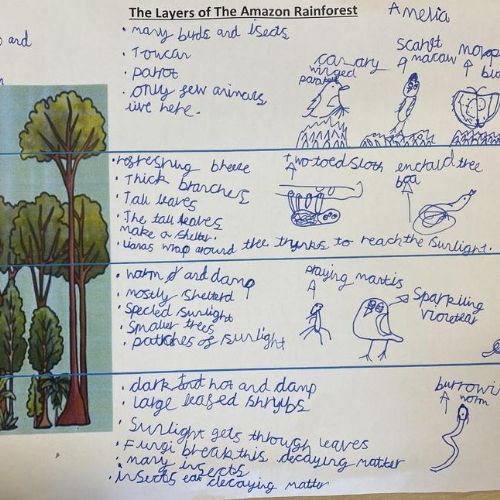 The Layers of The Amazon Rainforest
Amelia
and
• many birds and isects
• Toucan
• parrot
• only few animals
live here.
canary
winged
parakeet
scarlet
macaw
• refreshing breeze
• Thick branches
• Tall leaves
• The tall leaves
make a shelter.
• lianas wrap around the trunks to reach the sunlight.
two toed sloth
tree
boa
• warm and damp
• mostly shelterd
• specled sunlight
• smaller trees
• patches of sunlight
praying mantis
Sparkling
violetear
• dark but hot and damp
• large leafed shrubs
• Sunlight gets through leaves
• Fungi break this decaying matter
• many insects
• insects eat decaying matter
worm